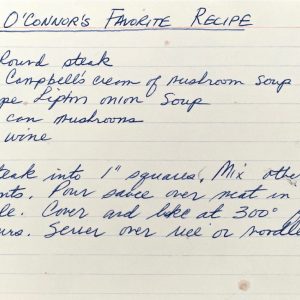 O'Connor's Favorite Recipe
round steak
Campbell's cream of mushroom soup
Lipton onion Soup
can mushrooms
wine
steak into 1" squares. Mix other
Pour sauce over meat in
Cover and bake at 300°
Server over rice or noodle